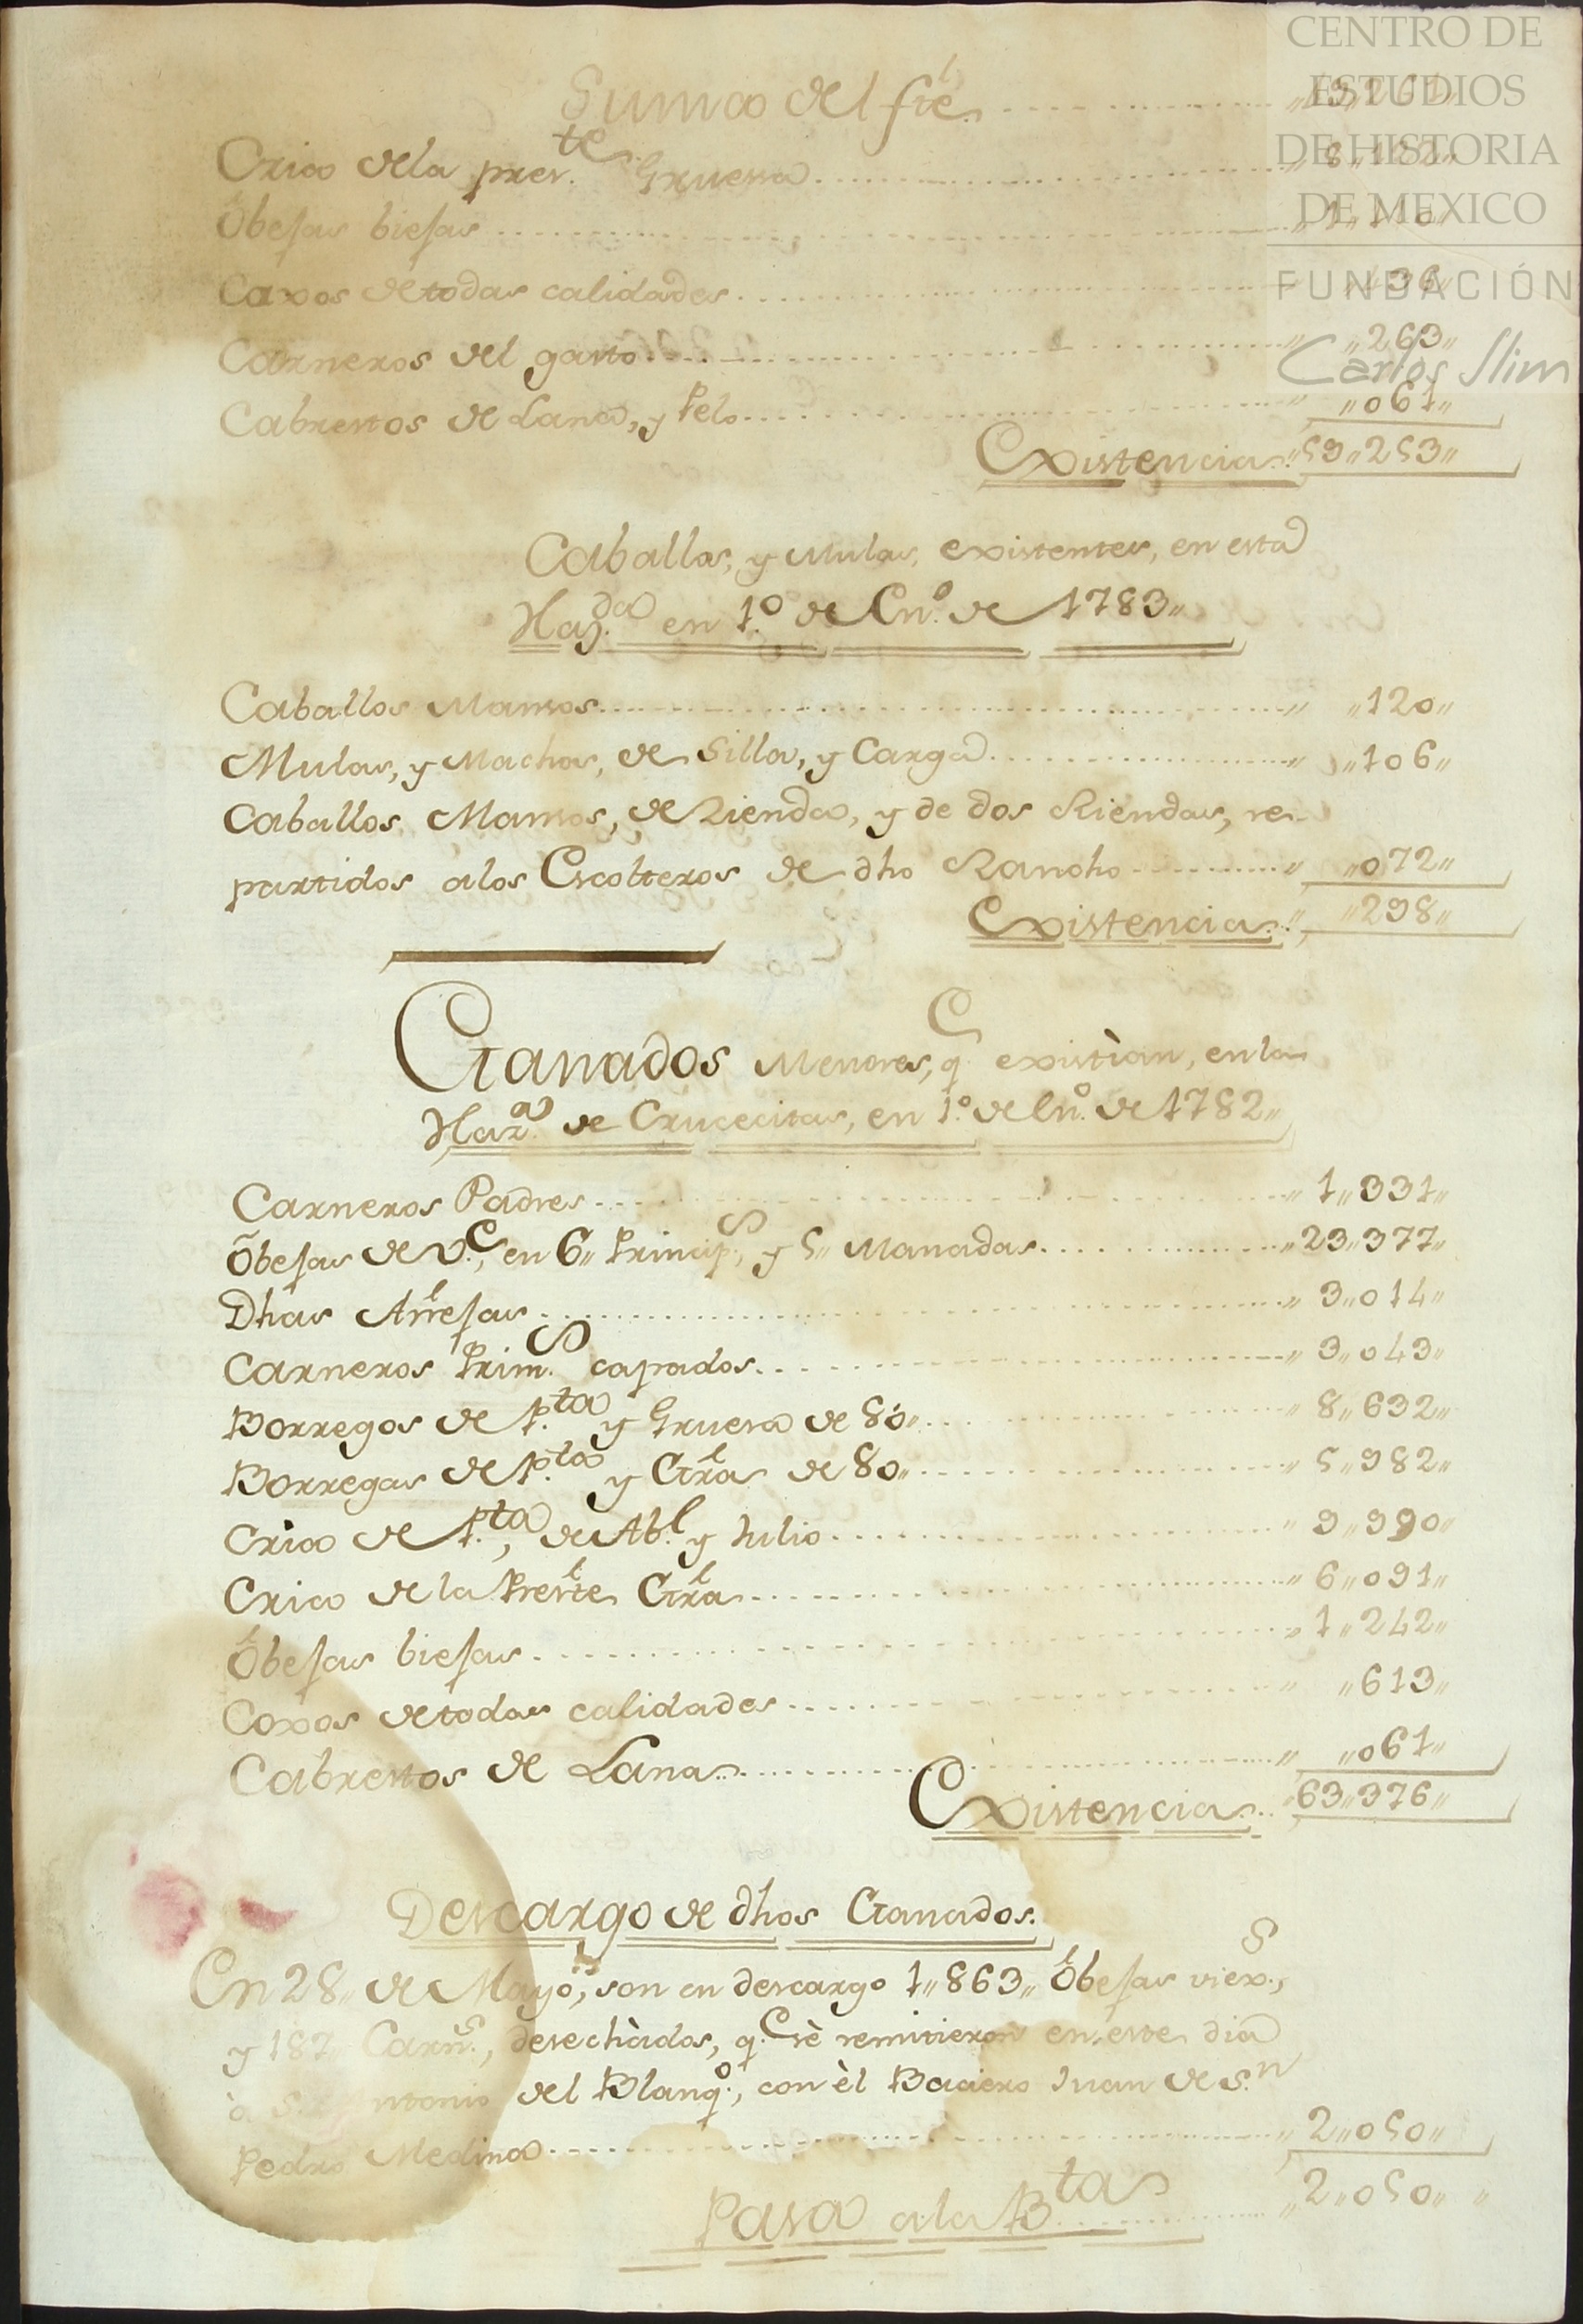 Suma del fte
CENTRO DE
ESTUDIOS
DE HISTORIA
DE MEXICO
FUNDACIÓN
Carlos Slim
Cria de la preste. Gruesa
Obejas biejas
Coxos de todas calidades
Carneros del gasto „263„
Cabrestos de Lana, y Pelo „061„
Existencia „59„253„
Caballos, y Mulas, existentes, en esta
Hazda. en 1.º de En.º de 1783„
Caballos Mansos „120„
Mulas, y Machos, de Silla, y Carga „106„
Caballos Mansos, de Rienda, y de dos Riendas, re-
partidos a los Escolteros de dho Rancho „072„
Existencia „298„
Ganados Menores, qe existian, en la
Haza. de Crucecitas, en 1.º de En.º de 1782„
Carneros Padres „1„331„
Obejas de Ve., en 6„ Princips., y 5„ Manadas „23„377„
Dhas Añejas „3„014„
Carneros Prims. capados „3„043„
Borregos de P.ta y Gruesa de 80„ „8„632„
Borregas de P.ta y Grâ de 80„ „5„982„
Cria de P.ta, de Ab.l y Julio „9„990„
Cria de la Preste Grâ „6„091„
Obejas biejas „1„242„
Coxos de todas calidades „613„
Cabrestos de Lana „061„
Existencia „63„376„
Descargo de dhos Ganados.
En 28„ de Mayo, son en descargo 1„863„ Obejas viexs.,
y 187 Carns., desechàdos, q.e sè remitieron en este dia
à S. Antonio del Blanq.º, con èl Baciero Juan de S.n
Pedro Medina „2„050„
Pasa a la B.ta „2„050„